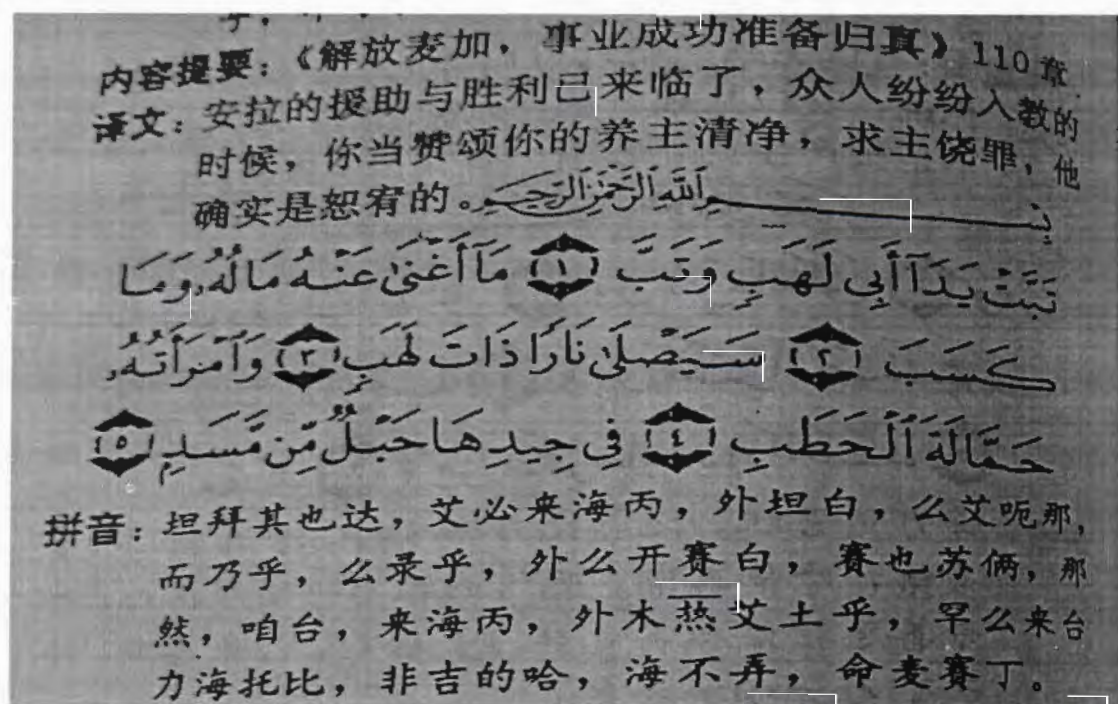 内容提要：《解放麦加，事业成功准备归真》110章.
译文：安拉的援助与胜利已来临了，众人纷纷入教的
时候，你当赞颂你的养主清净，求主饶罪，他
确实是恕宥的。بِسْمِ ٱللَّهِ ٱلرَّحْمَٰنِ ٱلرَّحِيمِ
تَبَّتْ يَدَآ أَبِى لَهَبٍ وَتَبَّ ﴿١﴾ مَآ أَغْنَىٰ عَنْهُ مَالُهُۥ وَمَا
كَسَبَ ﴿٢﴾ سَيَصْلَىٰ نَارًا ذَاتَ لَهَبٍ ﴿٣﴾ وَٱمْرَأَتُهُۥ
حَمَّالَةَ ٱلْحَطَبِ ﴿٤﴾ فِى جِيدِهَا حَبْلٌ مِّن مَّسَدٍۭ ﴿٥﴾
拼音：坦拜其也达，艾必来海丙，外坦白，么艾呃那，
而乃乎，么录乎，外么开赛白，赛也苏俩，那
然，咱台，来海丙，外木热艾土乎，罕么来台
力海托比，非吉的哈，海不弄，命麦赛丁。